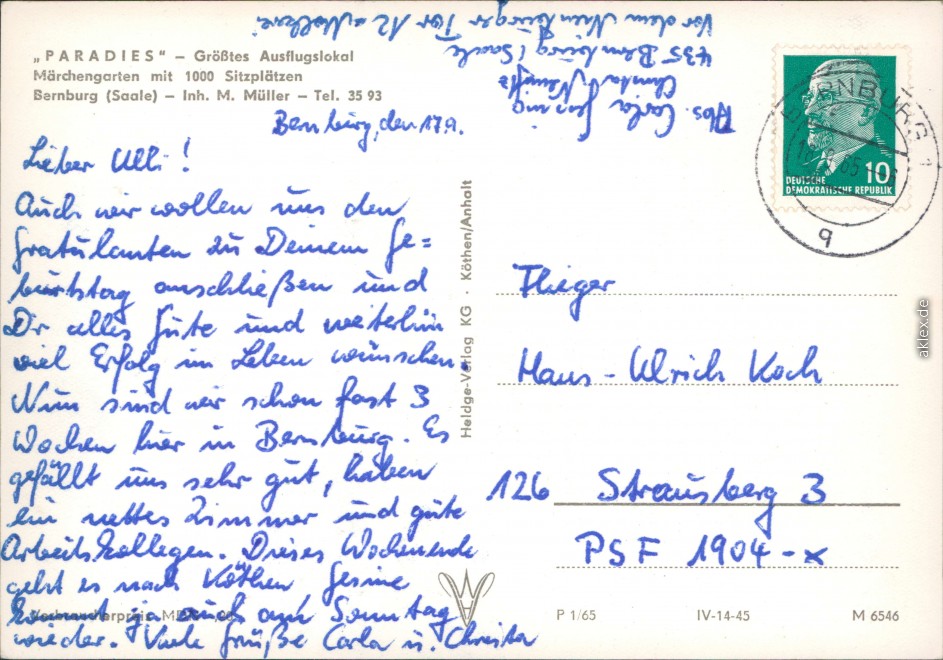 „PARADIES" – Größtes Ausflugslokal
Märchengarten mit 1000 Sitzplätzen
Bernburg (Saale) – Inh. M. Müller – Tel. 35 93
Abs. Carla
Christa
435 Bernburg/Saale
Vor dem Nienburger Tor 12
Bernburg, den 17.9.
Lieber Ulli!
Auch wir wollen uns den
Gratulanten zu Deinem Ge=
burtstag anschließen und
Dir alles Gute und weiterhin
viel Erfolg im Leben wünschen.
Nun sind wir schon fast 3
Wochen hier in Bernburg. Es
gefällt uns sehr gut, haben
ein nettes Zimmer und gute
Arbeitskollegen. Dieses Wochenende
geht es nach Köthen. Gesine
kommt ja auch am Sonntag
wieder. Viele Grüße Carla u. Christa
Heldge-Verlag KG · Köthen/Anhalt
BERNBURG 1
65
q
10
DEUTSCHE
DEMOKRATISCHE REPUBLIK
Flieger
Hans-Ulrich Koch
126 Strausberg 3
PSF 1904-x
Verbraucherpreis M
P 1/65 IV-14-45 M 6546
aklex.de